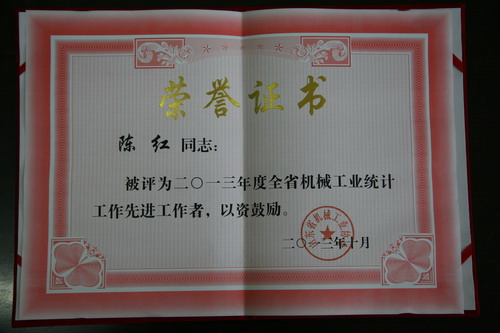 荣誉证书
陈红 同志：
被评为二〇一三年度全省机械工业统计
工作先进工作者，以资鼓励。
二〇一三年十月